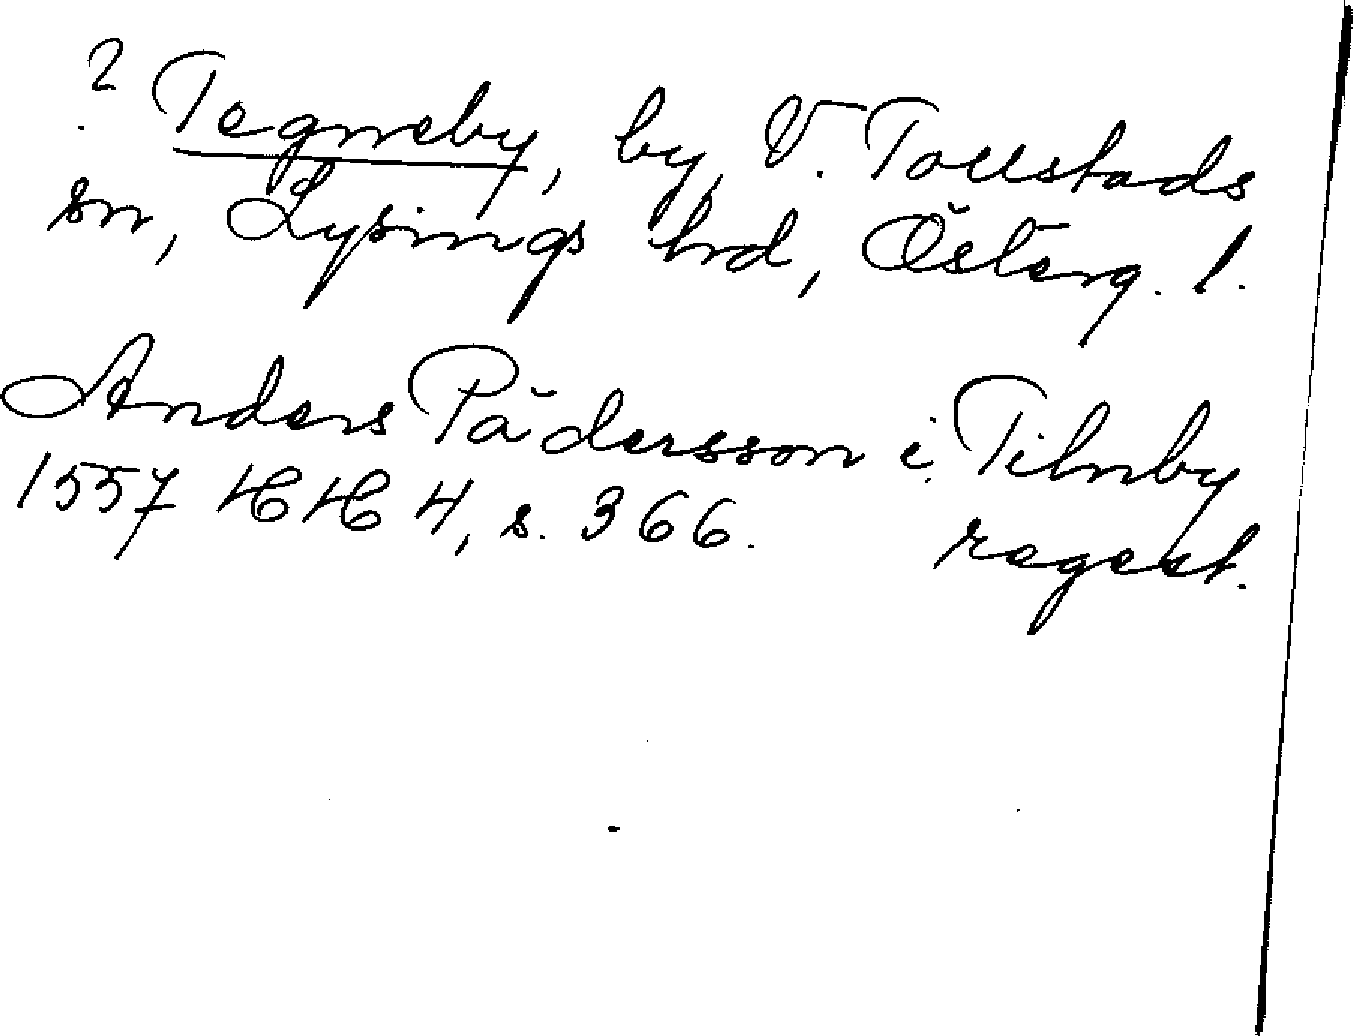 ? Tegneby, by, V. Tollstads
sn, Lysings hrd, Österg. l.
Anders Pädersson i Tilnby
1557 HH 4, s. 366. regest.